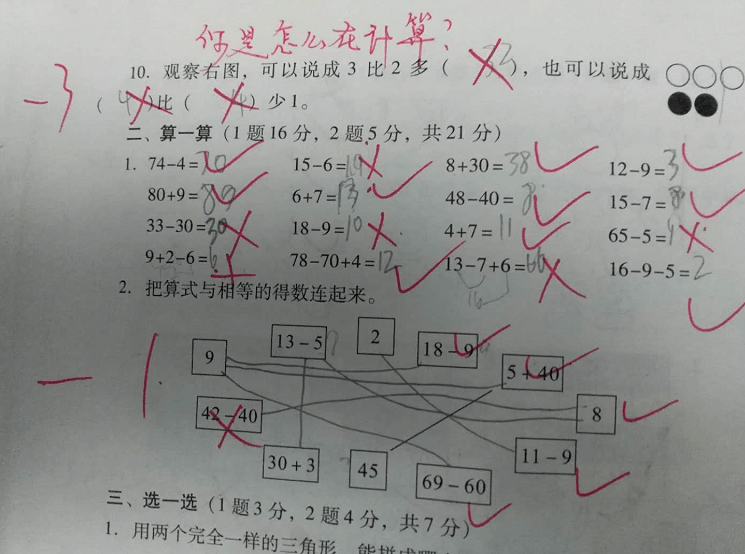 你是怎么在计算?
10. 观察右图,可以说成 3 比 2 多( 33 ),也可以说成
-3
( 4 )比( 4 )少 1。
二、算一算(1 题 16 分,2 题 5 分,共 21 分)
1. 74-4=70 15-6=10 8+30=38 12-9=3
80+9=89 6+7=13 48-40=8 15-7=8
33-30=30 18-9=10 4+7=11 65-5=1
9+2-6=6 78-70+4=12 13-7+6=66 16-9-5=2
16
2. 把算式与相等的得数连起来。
-1
9 13-5 2 18-9 5+40
42-40 8
30+3 45 69-60 11-9
三、选一选(1 题 3 分,2 题 4 分,共 7 分)
1. 用两个完全一样的三角形,能拼成哪